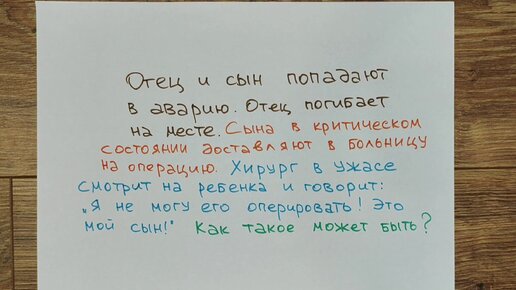 Отец и сын попадают
в аварию. Отец погибает
на месте. Сына в критическом
состоянии доставляют в больницу
на операцию. Хирург в ужасе
смотрит на ребенка и говорит:
„Я не могу его оперировать! Это
мой сын!" Как такое может быть?